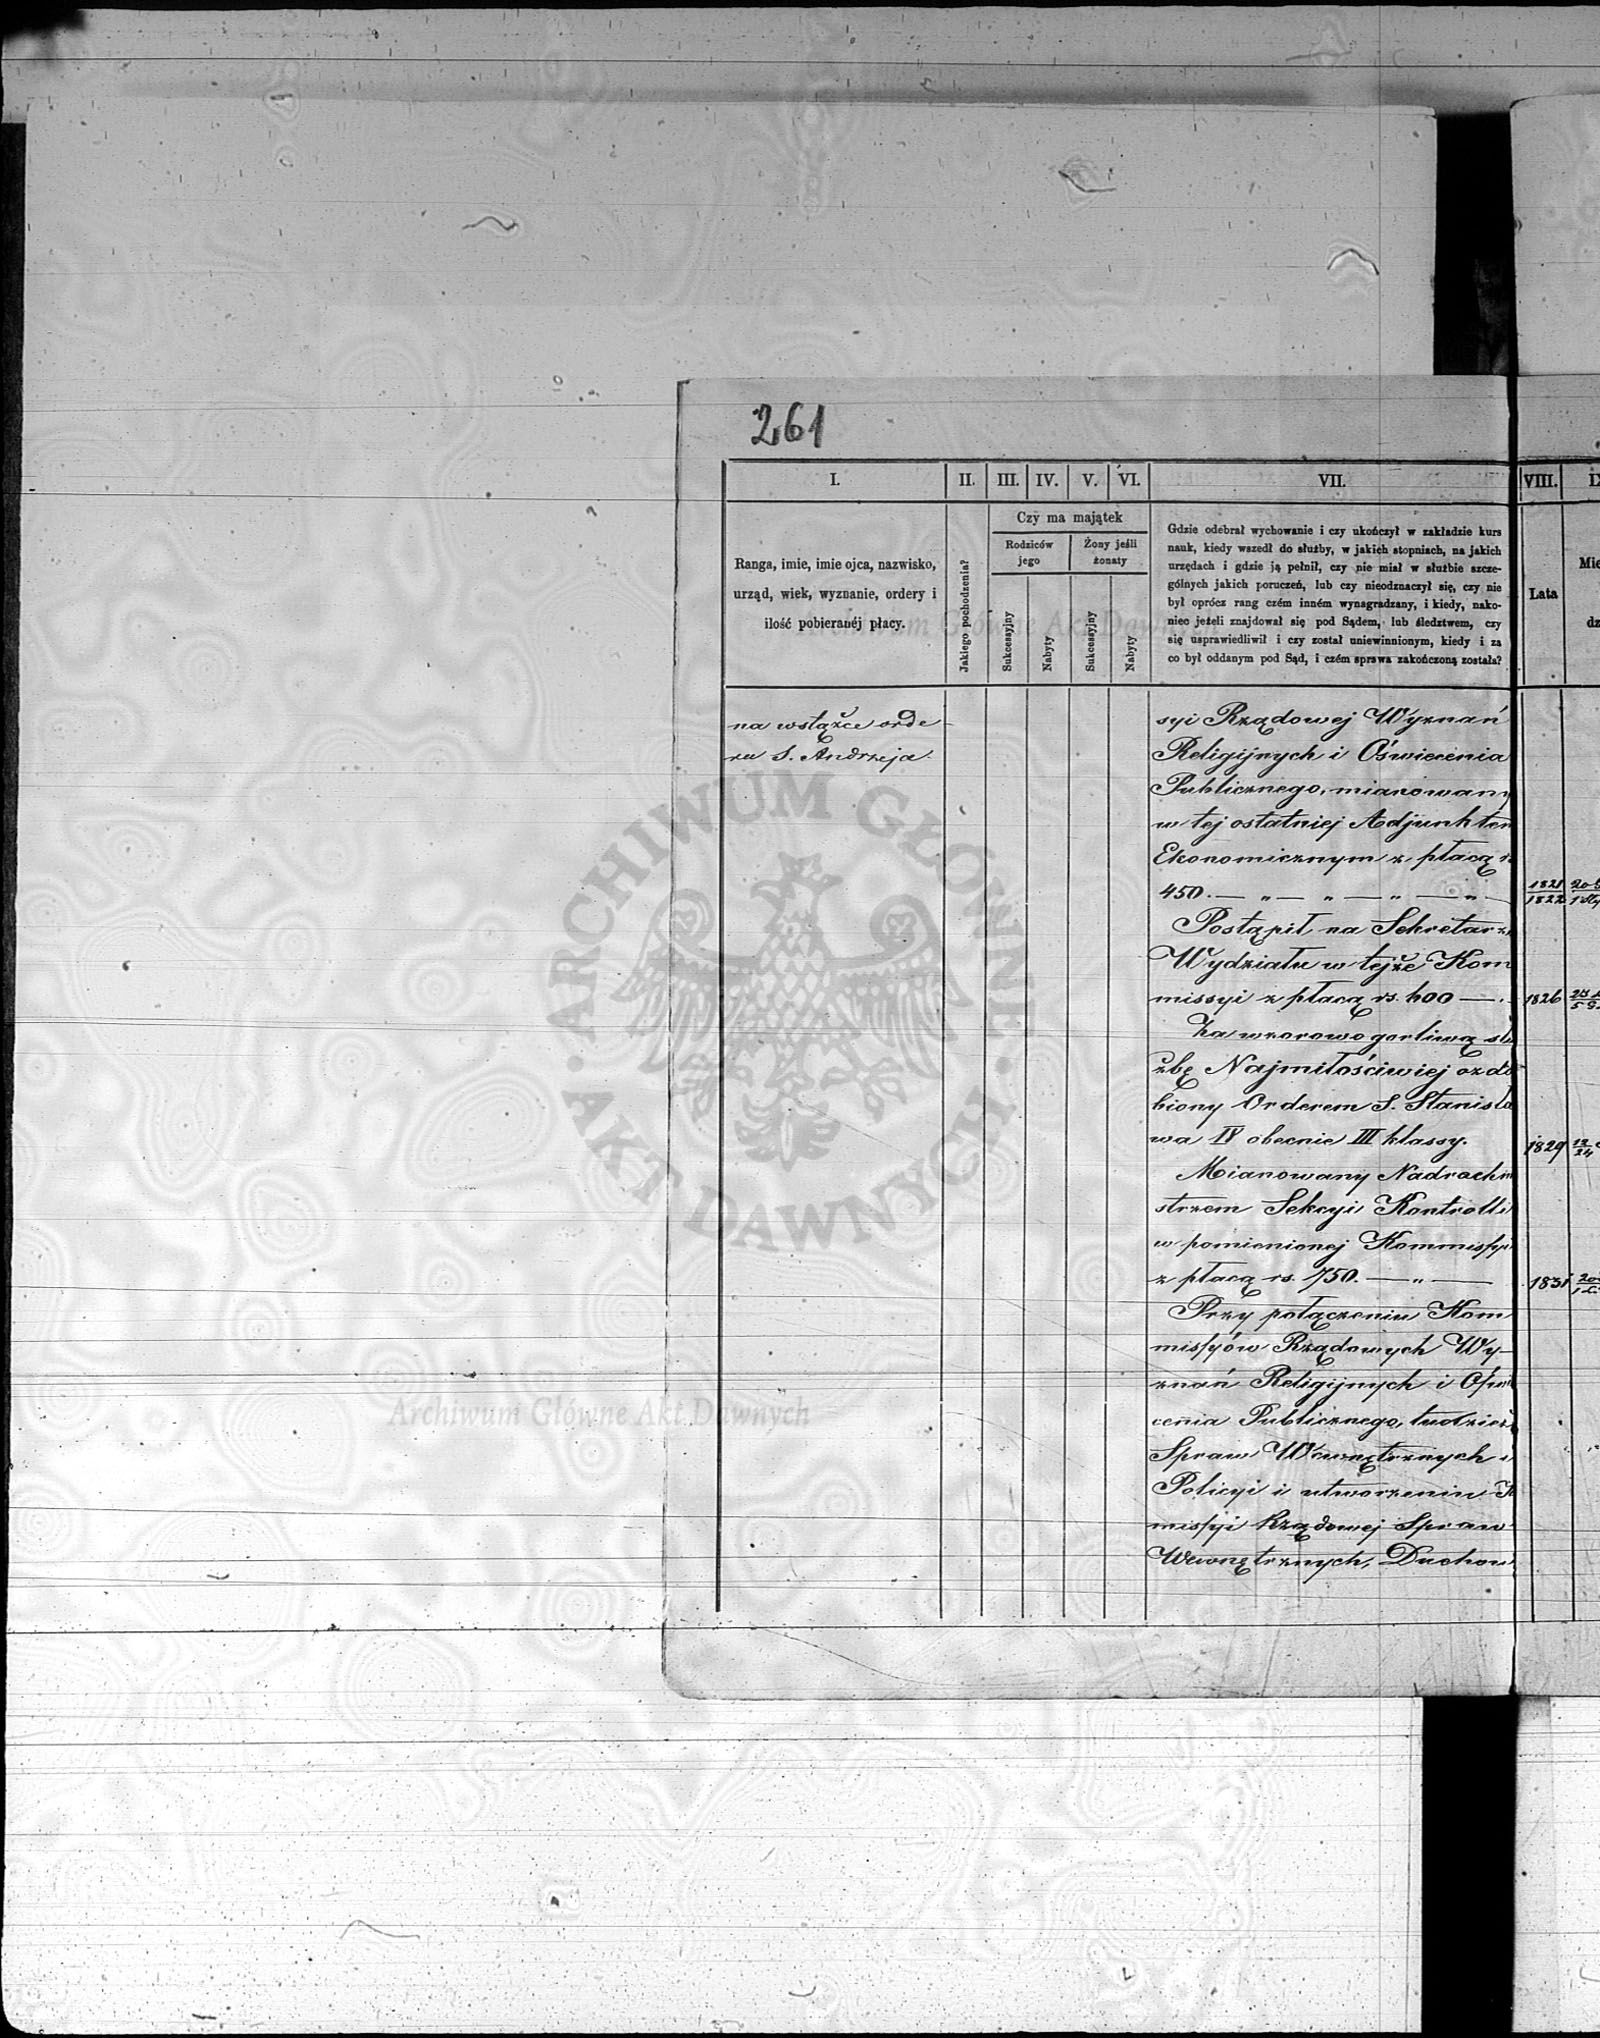 261
I. II. III. IV. V. VI. VII. VIII.
Ranga, imie, imie ojca, nazwisko,
urząd, wiek, wyznanie, ordery i
ilość pobieranéj płacy.
Jakiego pochodzenia?
Czy ma majątek
Rodziców
jego
Żony jeśli
żonaty
Sukcessyjny
Nabyty
Sukcessyjny
Nabyty
Gdzie odebrał wychowanie i czy ukończył w zakładzie kurs
nauk, kiedy wszedł do służby, w jakich stopniach, na jakich
urzędach i gdzie ją pełnił, czy nie miał w służbie szcze-
gólnych jakich poruczeń, lub czy nieodznaczył się, czy nie
był oprócz rang czém inném wynagradzany, i kiedy, nako-
niec jeżeli znajdował się pod Sądem, lub śledztwem, czy
się usprawiedliwił i czy został uniewinnionym, kiedy i za
co był oddanym pod Sąd, i czém sprawa zakończoną została?
Lata
na wstążce orde-
ru S. Andrzeja.
syi Rządowej Wyznań
Religijnych i Oświecenia
Publicznego, mianowany
w tej ostatniej Adjunktem
Ekonomicznym z płacą
450. — „ — „ — „ — „ —
1821
1822
Postąpił na Sekretarza
Wydziału w tejże Kom
missyi z płacą rs. 600 —
1826
Za wzorowo gorliwą słu
żbę Najmiłościwiej ozdo
biony Orderem S. Stanisła
wa IV obecnie III klassy.
1829 12
24
Mianowany Nadrachmi
strzem Sekcyi Kontrolli
w pomienionej Kommissyi
z płacą rs. 750. — „ —
1831
Przy połączeniu Kom
missyów Rządowych Wy-
znań Religijnych i Oświe
cenia Publicznego, tudzież
Spraw Wewnętrznych i
Policyi i utworzeniu K
missyi Rządowej Spraw
Wewnętrznych, Duchow
ARCHIWUM GŁÓWNE · AKT DAWNYCH ·
Archiwum Główne Akt Dawnych
Archiwum Główne Akt Dawnych